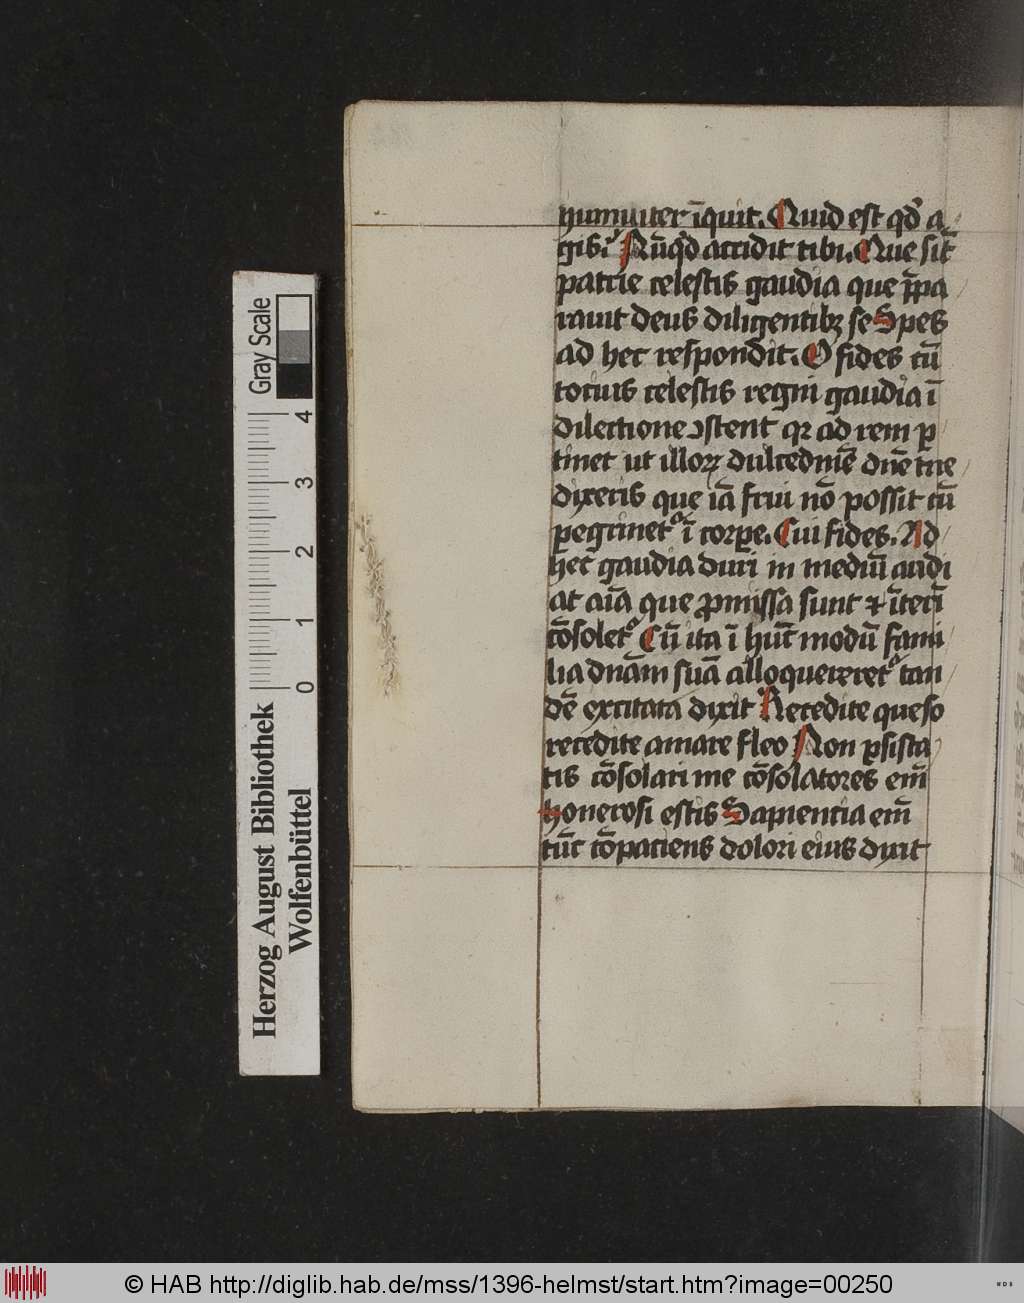 humiliter īquit. Quid est qd' a
gis? Nūqd accidit tibi. Que sīt
patrie celestis gaudia que p̄pa
rauit deus diligentibꝫ se Spes
ad hec respondit. O fides cū
tocius celestis regni gaudia ī
dilectione ꝯstent qꝛ ad rem ꝑ
tinet ut illoꝝ dulcedinē dn̄e tue
dixeris que iā frui nō possit cū
ꝑegrinet᷑ ī corꝑe. Cui fides. Ad
hec gaudia diuī in mediū audi
at aīa que ꝓmissa sunt ⁊ īterī
cōsolet᷑ Cū ita ī hūc modū fami
lia dnām suā alloquereret᷑ tan
dē excitata dixit Recedite queso
recedite amare fleo Non ꝑsista
tis cōsolari me cōsolatores em̄
honerosi estis Sapientia em̄
tūc cōpatiens dolori eius dixit
Gray Scale
4
3
2
1
0
Herzog August Bibliothek
Wolfenbüttel
© HAB http://diglib.hab.de/mss/1396-helmst/start.htm?image=00250
WDB